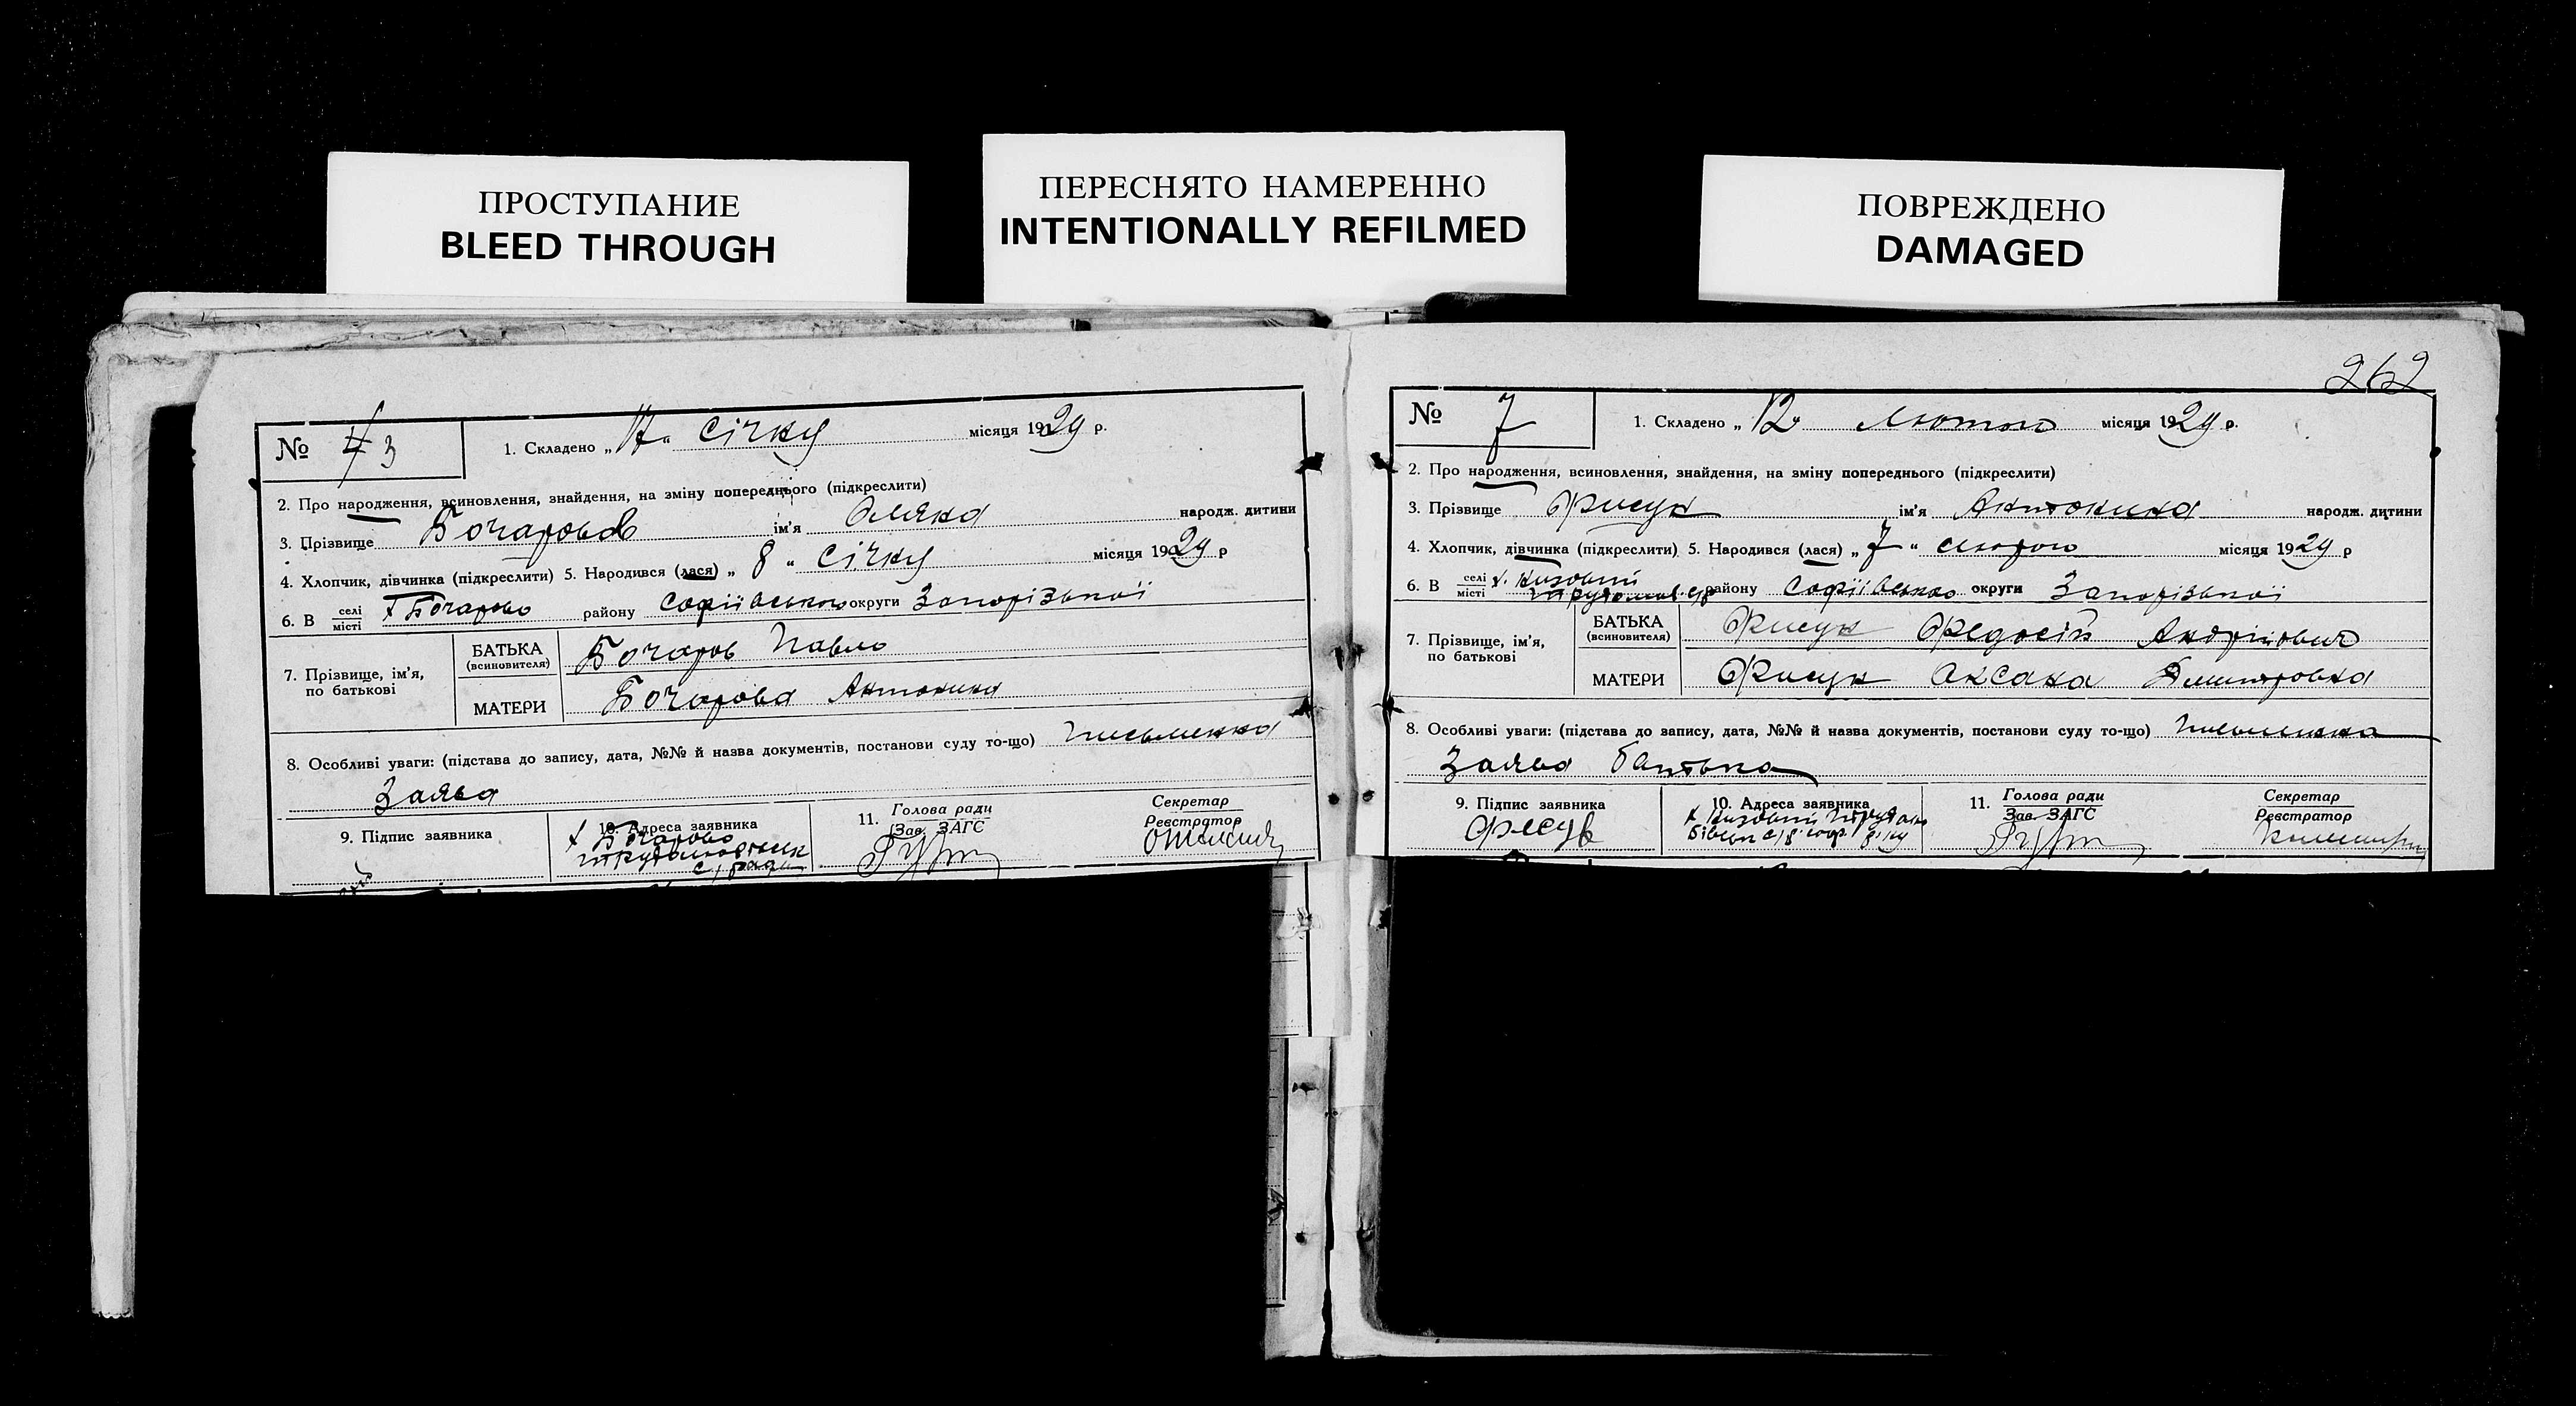 ПРОСТУПАНИЕ
BLEED THROUGH
ПЕРЕСНЯТО НАМЕРЕННО
INTENTIONALLY REFILMED
ПОВРЕЖДЕНО
DAMAGED
№ 3
1. Складено „17“ Січня місяця 1929 р.
2. Про народження, всиновлення, знайдення, на зміну попереднього (підкреслити)
3. Прізвище Бочарова ім'я народж. дитини
4. Хлопчик, дівчинка (підкреслити) 5. Народився (лася) „8“ Січня місяця 1929 р
6. В селі місті х Бочарово району Софіївського округи Запорізької
7. Прізвище, ім'я, по батькові
БАТЬКА (всиновителя) Бочаров Павло
МАТЕРИ Бочарова Антонина
8. Особливі уваги: (підстава до запису, дата, №№ й назва документів, постанови суду то-що) письменна
Заява
9. Підпис заявника
10. Адреса заявника
х Бочарово
с/ради
11. Голова ради
Зав. ЗАГС
Секретар
Реєстратор
262
№ 7
1. Складено „12“ Лютого місяця 1929 р.
2. Про народження, всиновлення, знайдення, на зміну попереднього (підкреслити)
3. Прізвище Фисун ім'я Антонина народж. дитини
4. Хлопчик, дівчинка (підкреслити) 5. Народився (лася) „7“ Лютого місяця 1929 р
6. В селі місті х. району Софіївського округи Запорізької
7. Прізвище, ім'я, по батькові
БАТЬКА (всиновителя) Фисун Федосій Андрійович
МАТЕРИ Фисун Оксана Дмитровна
8. Особливі уваги: (підстава до запису, дата, №№ й назва документів, постанови суду то-що) Письменна
Заява батька
9. Підпис заявника
10. Адреса заявника
11. Голова ради
Зав. ЗАГС
Секретар
Реєстратор